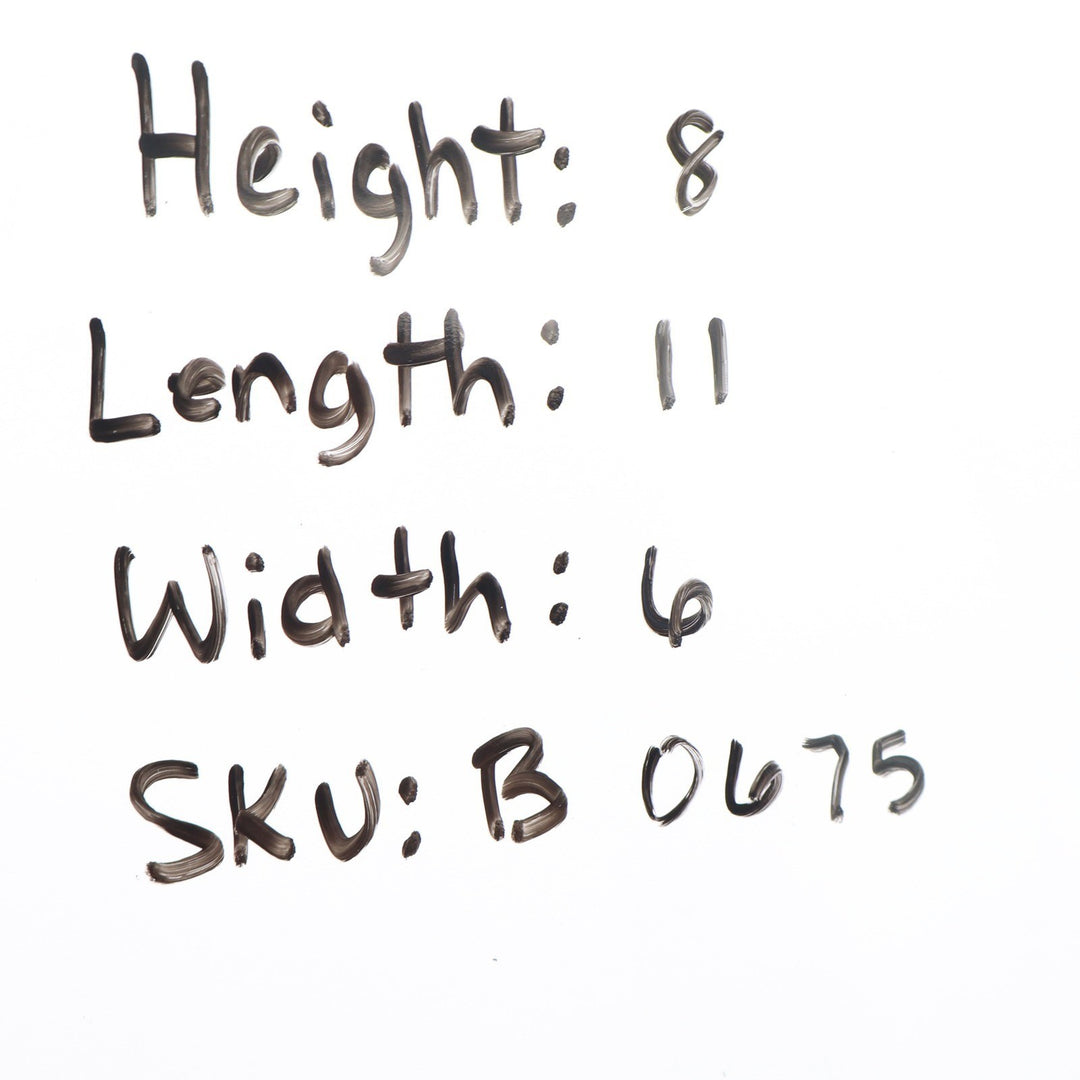 Height: 8
Length: 11
Width: 6
SKU: B 0675